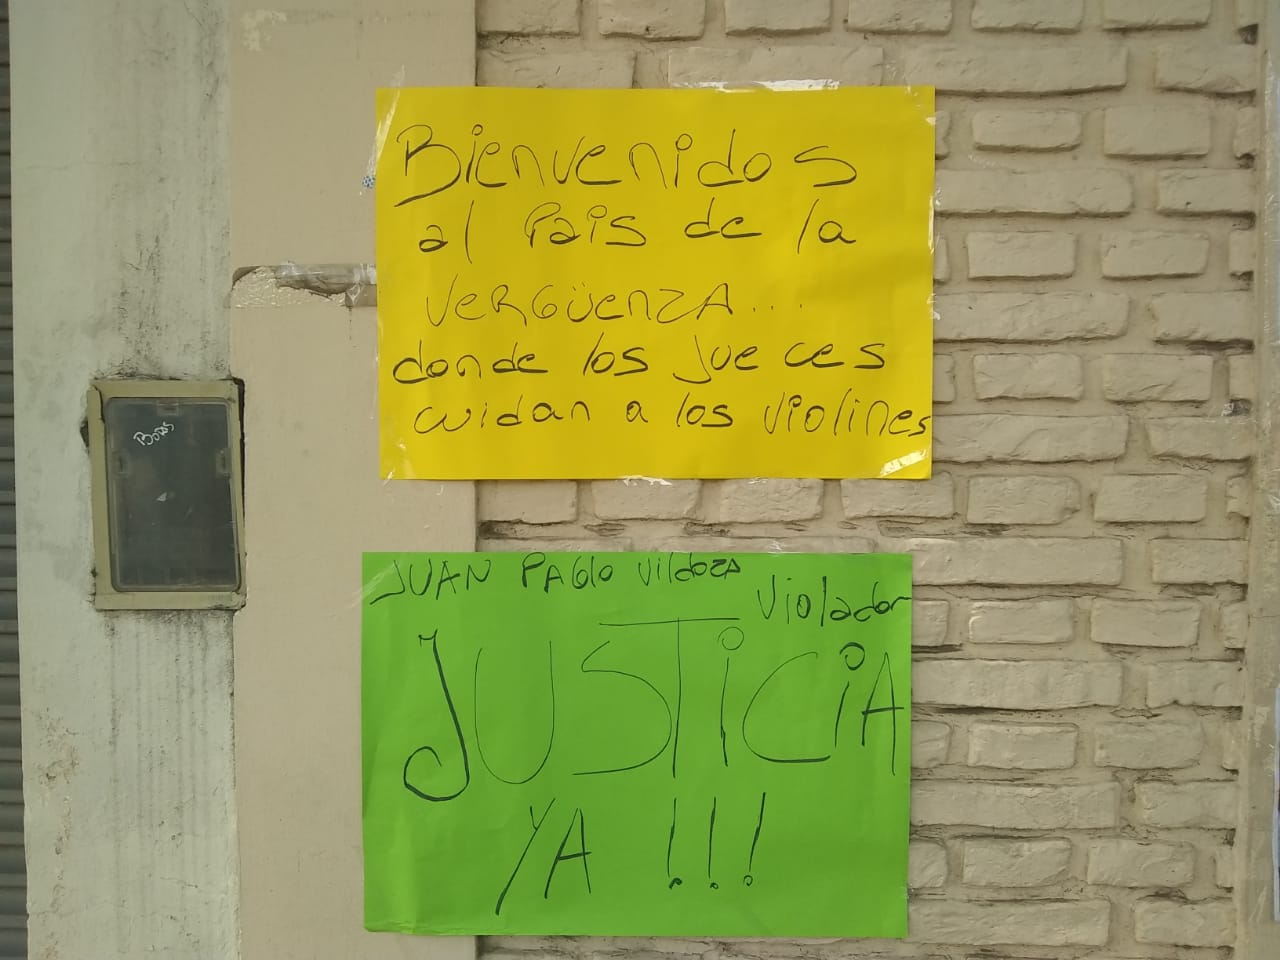 Bienvenidos
al Pais de la
VERGÜENZA...
donde los jueces
cuidan a los violines
JUAN PABLO Vildoza
Violador
JUSTICIA
YA !!!